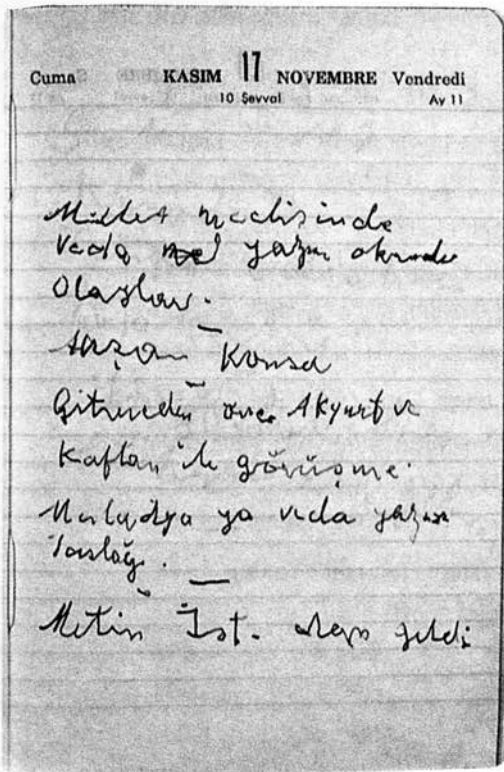 Cuma KASIM 17 NOVEMBRE Vendredi
10 Şevval Ay 11
Millet meclisinde
Veda yazım okundu
Olaylar.
Konsa
Gitmeden önce Akyurt ve
Kaftan ile görüşme.
Malatya ya veda yazısı
taslağı.
Metin İst. dan geldi